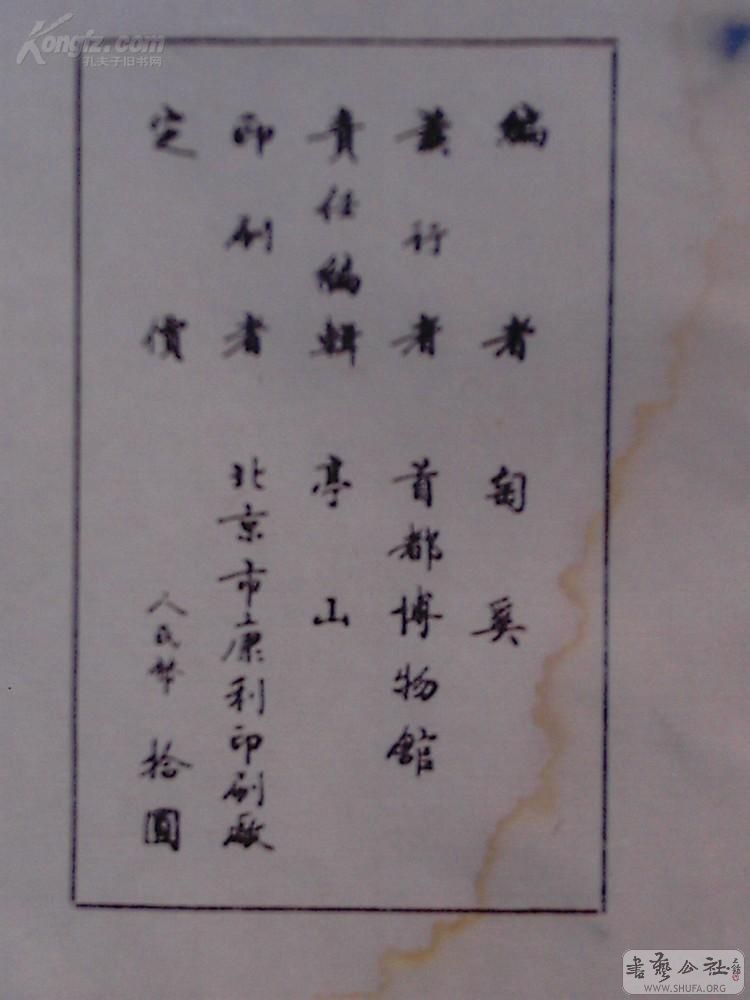 編者 匋奚
發行者 首都博物館
責任編輯 亭山
印刷者 北京市康利印刷廠
定價 人民幣 拾圓
Kongfz.com
孔夫子旧书网
書藝公社
WWW.SHUFA.ORG